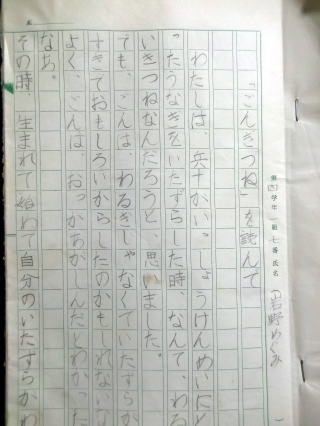 「ごんぎつね」を読んで
第四学年 一組 七番 氏名
野めぐみ
わたしは、兵十がいっしょうけんめいにと
ったうなぎをいたずらした時、なんて、わる
いきつねなんだろうと、思いました。
でも、ごんは、わるぎじゃなくていたずらが
すきでおもしろいからしたのかもしれないな
よく、ごんは、おっかちがしんだとわかった
なぁ。
その時、生まれて始めて自分のいたずらかわ